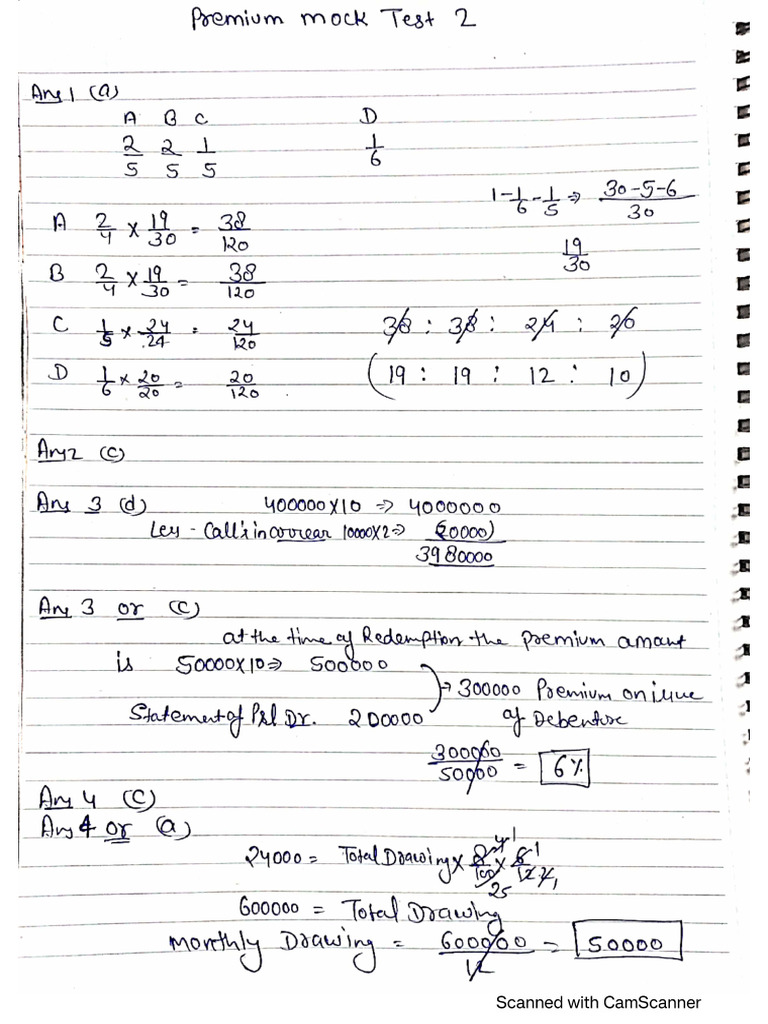 Premium mock Test 2
Ans 1 (a)
A B C D
2/5 2/5 1/5 1/6
1-1/6-1/5 ⇒ 30-5-6/30
A 2/4 × 19/30 = 38/120
19/30
B 2/4 × 19/30 = 38/120
C 1/5 × 24/24 = 24/120 38 : 38 : 24 : 20
D 1/6 × 20/20 = 20/120 (19 : 19 : 12 : 10)
Ans 2 (c)
Ans 3 (d) 400000×10 ⇒ 4000000
Less - Call's in arrear 10000×2 ⇒ (20000)
3980000
Ans 3 or (c)
at the time of Redemption the premium amount
is 50000×10 ⇒ 500000
→ 300000 Premium on issue
Statement of P&L Dr. 200000 of Debenture
300000/50000 = 6%
Ans 4 (c)
Ans 4 or (a)
24000 = Total Drawing × 8/100 × 6/12
25
600000 = Total Drawing
Monthly Drawing = 600000/12 = 50000
Scanned with CamScanner